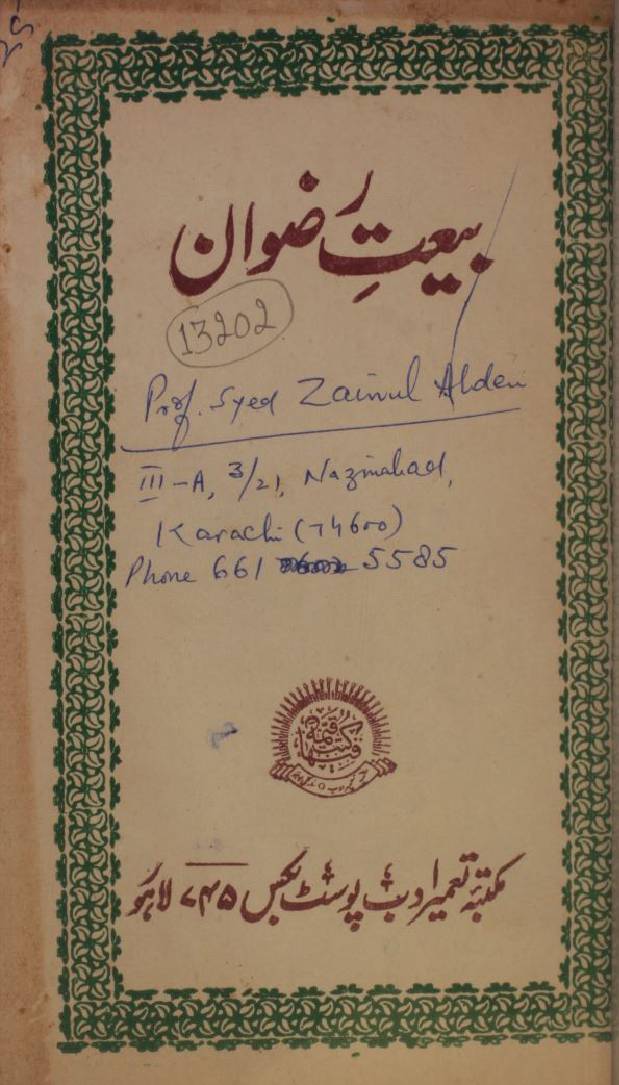 بیعتِ رضوان
13202
Prof. Syed Zainul Abden
III-A, 3/21, Nazimabad,
Karachi (74600)
Phone 661 5585
فیہا کتب قیمۃ
مکتبۂ تعمیر ادب پوسٹ بکس ۷۴۵ لاہور